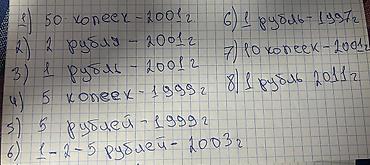 1) 50 копеек - 2001г
2) 2 рубля - 2001г
3) 1 рубль - 2001г
4) 5 копеек - 1999г
5) 5 рублей - 1999г
6) 1-2-5 рублей - 2003г
6) 1 рубль - 1997г
7) 10 копеек - 2001г
8) 1 рубль 2011г